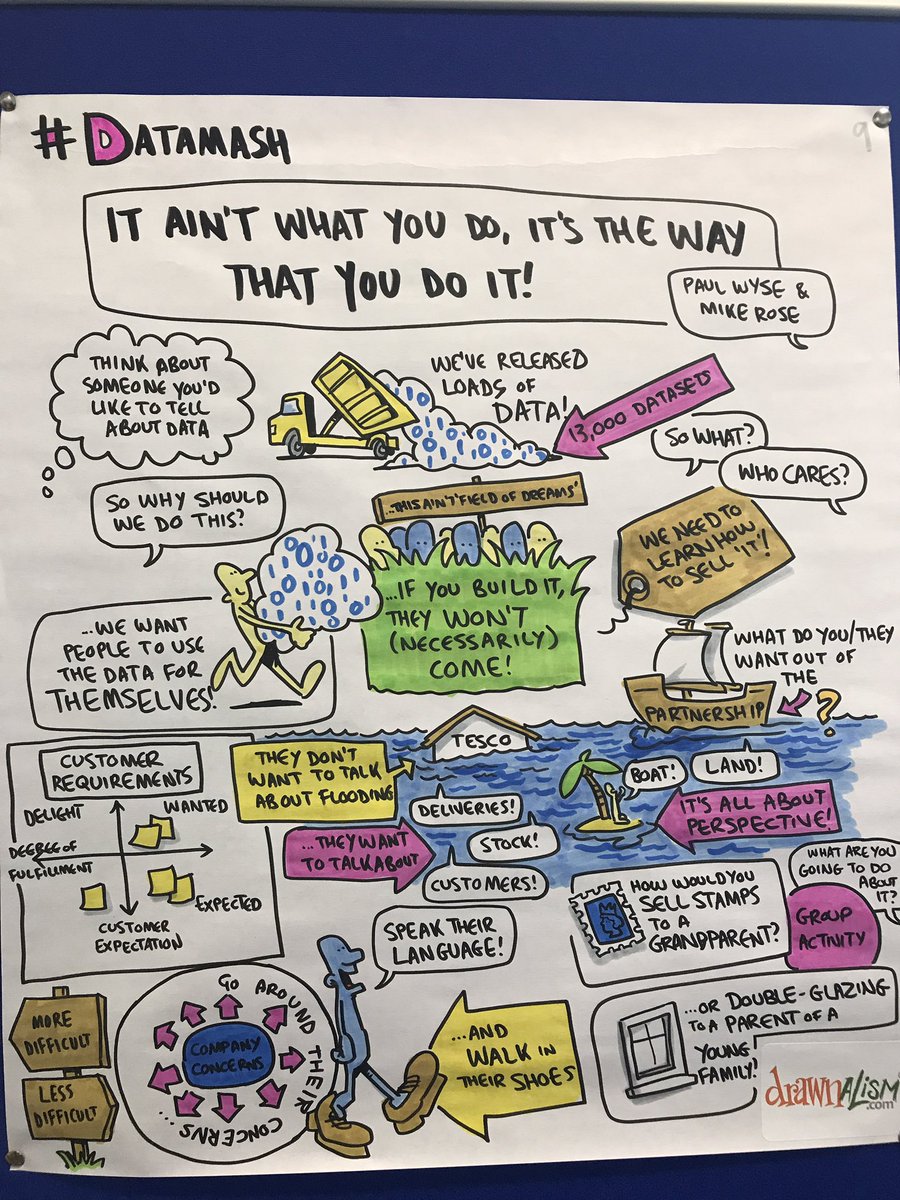 #DATAMASH
9
IT AIN'T WHAT YOU DO, IT'S THE WAY
THAT YOU DO IT!
PAUL WYSE &
MIKE ROSE
THINK ABOUT
SOMEONE YOU'D
LIKE TO TELL
ABOUT DATA
WE'VE RELEASED
LOADS OF
DATA!
13,000 DATASETS
SO WHAT?
WHO CARES?
SO WHY SHOULD
WE DO THIS?
...THIS AIN'T 'FIELD OF DREAMS'
WE NEED TO
LEARN HOW
TO SELL 'IT'!
...IF YOU BUILD IT,
THEY WON'T
(NECESSARILY)
COME!
...WE WANT
PEOPLE TO USE
THE DATA FOR
THEMSELVES!
WHAT DO YOU/THEY
WANT OUT OF
THE
PARTNERSHIP
?
CUSTOMER
REQUIREMENTS
DELIGHT
WANTED
DEGREE OF
FULFILLMENT
EXPECTED
CUSTOMER
EXPECTATION
THEY DON'T
WANT TO TALK
ABOUT FLOODING
TESCO
BOAT!
LAND!
DELIVERIES!
STOCK!
CUSTOMERS!
...THEY WANT
TO TALK ABOUT
IT'S ALL ABOUT
PERSPECTIVE!
HOW WOULD YOU
SELL STAMPS
TO A
GRANDPARENT?
WHAT ARE YOU
GOING TO DO
ABOUT
IT?
GROUP
ACTIVITY
SPEAK THEIR
LANGUAGE!
...OR DOUBLE-GLAZING
TO A PARENT OF A
YOUNG
FAMILY!
MORE
DIFFICULT
LESS
DIFFICULT
GO AROUND THEIR CONCERNS...
COMPANY
CONCERNS
...AND
WALK IN
THEIR SHOES
drawnalism
.com